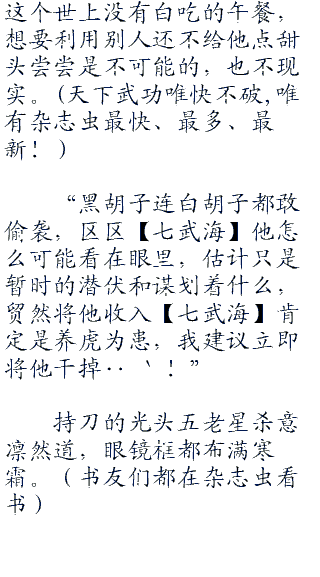 这个世上没有白吃的午餐，
想要利用别人还不给他点甜
头尝尝是不可能的，也不现
实。(天下武功唯快不破,唯
有杂志虫最快、最多、最
新！)
“黑胡子连白胡子都敢
偷袭，区区【七武海】他怎
么可能看在眼里，估计只是
暂时的潜伏和谋划着什么，
贸然将他收入【七武海】肯
定是养虎为患，我建议立即
将他干掉‥｀！”
持刀的光头五老星杀意
凛然道，眼镜框都布满寒
霜。（书友们都在杂志虫看
书）